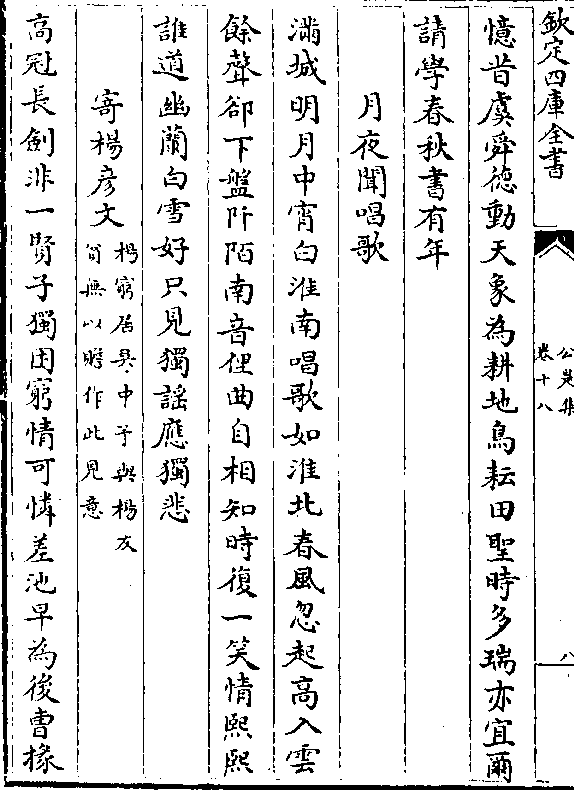 欽定四庫全書
公是集
卷十八
八
憶昔虞舜德動天象為耕地鳥耘田聖時多瑞亦宜爾
請學春秋書有年
月夜聞唱歌
滿城明月中宵白淮南唱歌如淮北春風忽起高入雲
餘聲卻下盤阡陌南音俚曲自相知時復一笑情熙熙
誰道幽蘭白雪好只見獨謡應獨悲
寄楊彦文
楊窮居吳中予與楊友
貧無以贍作此見意
高冠長劍非一賢子獨困窮情可憐差池早為後曹掾